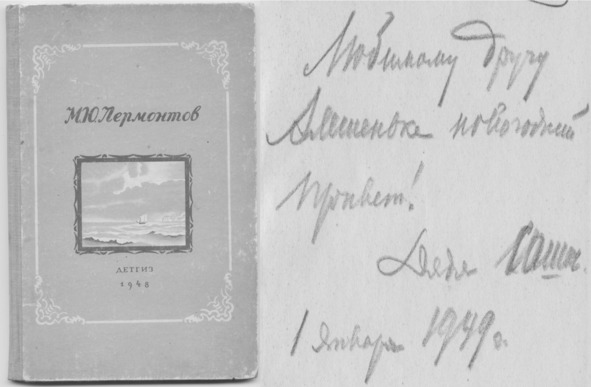 М.Ю. Лермонтов
ДЕТГИЗ
1948
Любимому другу
Алешеньке новогодний
привет!
Дядя Саша.
1 января 1949 г.